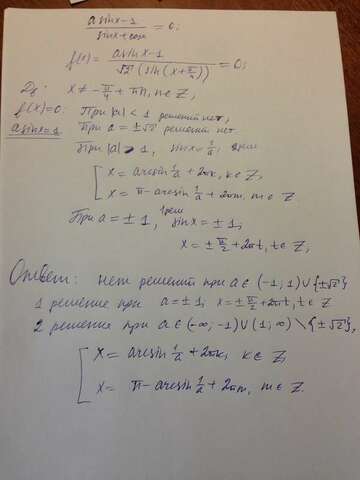 a sinx-1 / sinx+cosx = 0;
f(x) = a sinx-1 / √2 (sin(x+π/4)) = 0;
x ≠ -π/4 + πn, n∈Z,
f(x)=0: При |a| < 1 решений нет,
a sinx=1, При a = ±√2 решений нет
При |a| > 1, sinx = 1/a, 2 реш
[ x = arcsin 1/a + 2πk, k∈Z,
x = π - arcsin 1/a + 2πm, m∈Z
При a = ±1, 1 реш sinx = ±1;
x = ±π/2 + 2πt, t∈Z,
Ответ: нет решений при a∈(-1; 1)∪{±√2}
1 решение при a = ±1; x = ±π/2 + 2πt, t∈Z
2 решения при a∈(-∞; -1)∪(1; ∞)\{±√2},
[ x = arcsin 1/a + 2πk, k∈Z,
x = π - arcsin 1/a + 2πm, m∈Z.